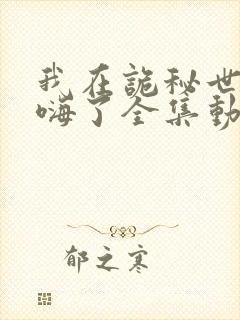 我在詭秘世
嗨了全集動
郁之寒